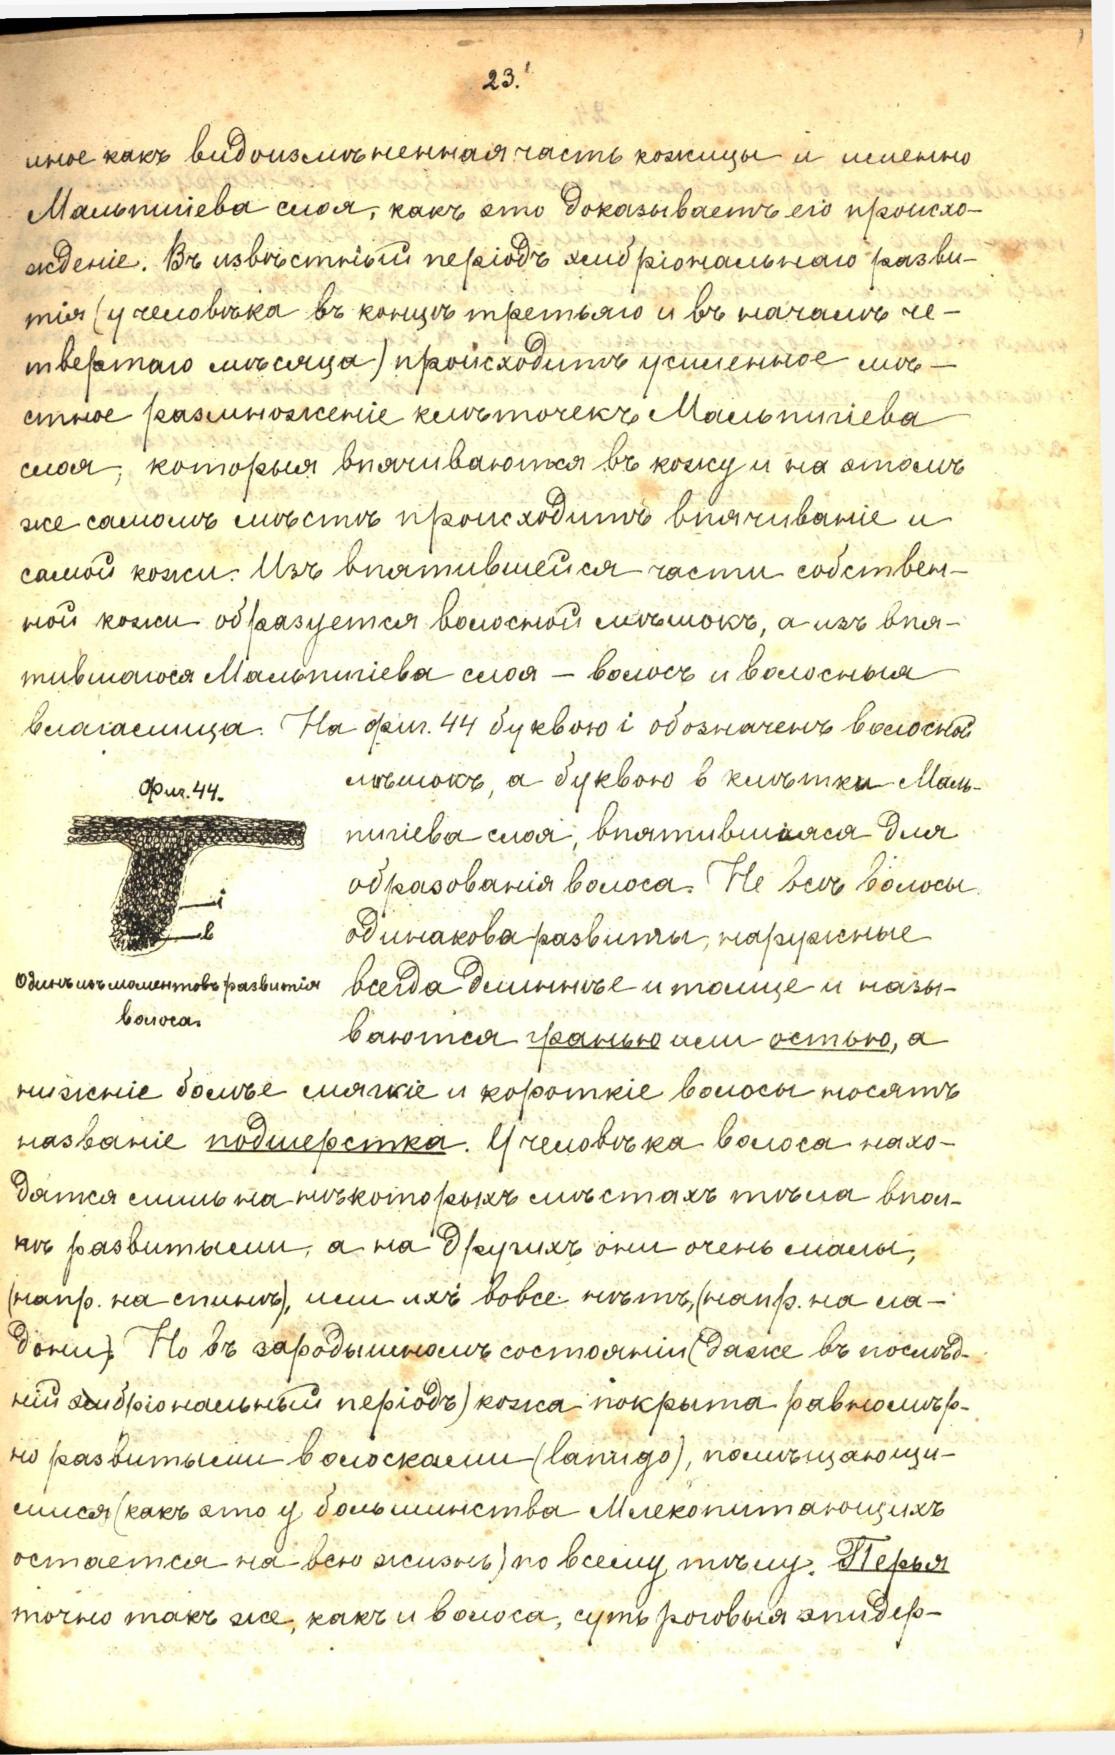 23.
иное какъ видоизмѣненная часть кожицы и именно
Мальпигіева слоя, какъ это доказываетъ его происхо-
жденіе. Въ извѣстный періодъ эмбріональнаго разви-
тія (у человѣка въ концѣ третьяго и въ началѣ че-
твертаго мѣсяца) происходитъ усиленное мѣ-
стное размноженіе клѣточекъ Мальпигіева
слоя, которыя впячиваются въ кожу и на этомъ
же самомъ мѣстѣ происходитъ впячиваніе и
самой кожи. Изъ впятившейся части собствен-
ной кожи образуется волосной мѣшокъ, а изъ впя-
тившагося Мальпигіева слоя – волосъ и волосныя
влагалища. На фиг. 44 буквою i обозначенъ волосной
мѣшокъ, а буквою в клѣтки Маль-
пигіева слоя, впятившіяся для
образованія волоса. Не всѣ волосы
одинакова развиты, наружные
всегда длиннѣе и толще и назы-
ваются гранью или остью, а
Фиг. 44.
i
в
Одинъ изъ моментовъ развитія
волоса.
нижніе болѣе мягкіе и короткіе волосы носятъ
названіе подшерстка. У человѣка волоса нахо-
дятся лишь на нѣкоторыхъ мѣстахъ тѣла впол-
нѣ развитыми, а на другихъ они очень малы,
(напр. на спинѣ), или ихъ вовсе нѣтъ, (напр. на ла-
дони). Но въ зародышномъ состояніи (даже въ послѣд-
ній эмбріональный періодъ) кожа покрыта равномѣр-
но развитыми волосками (lanugo), помѣщающи-
мися (какъ это у большинства Млекопитающихъ
остается на всю жизнь) по всему тѣлу. Перья
точно такъ же, какъ и волоса, суть роговыя эпидер-